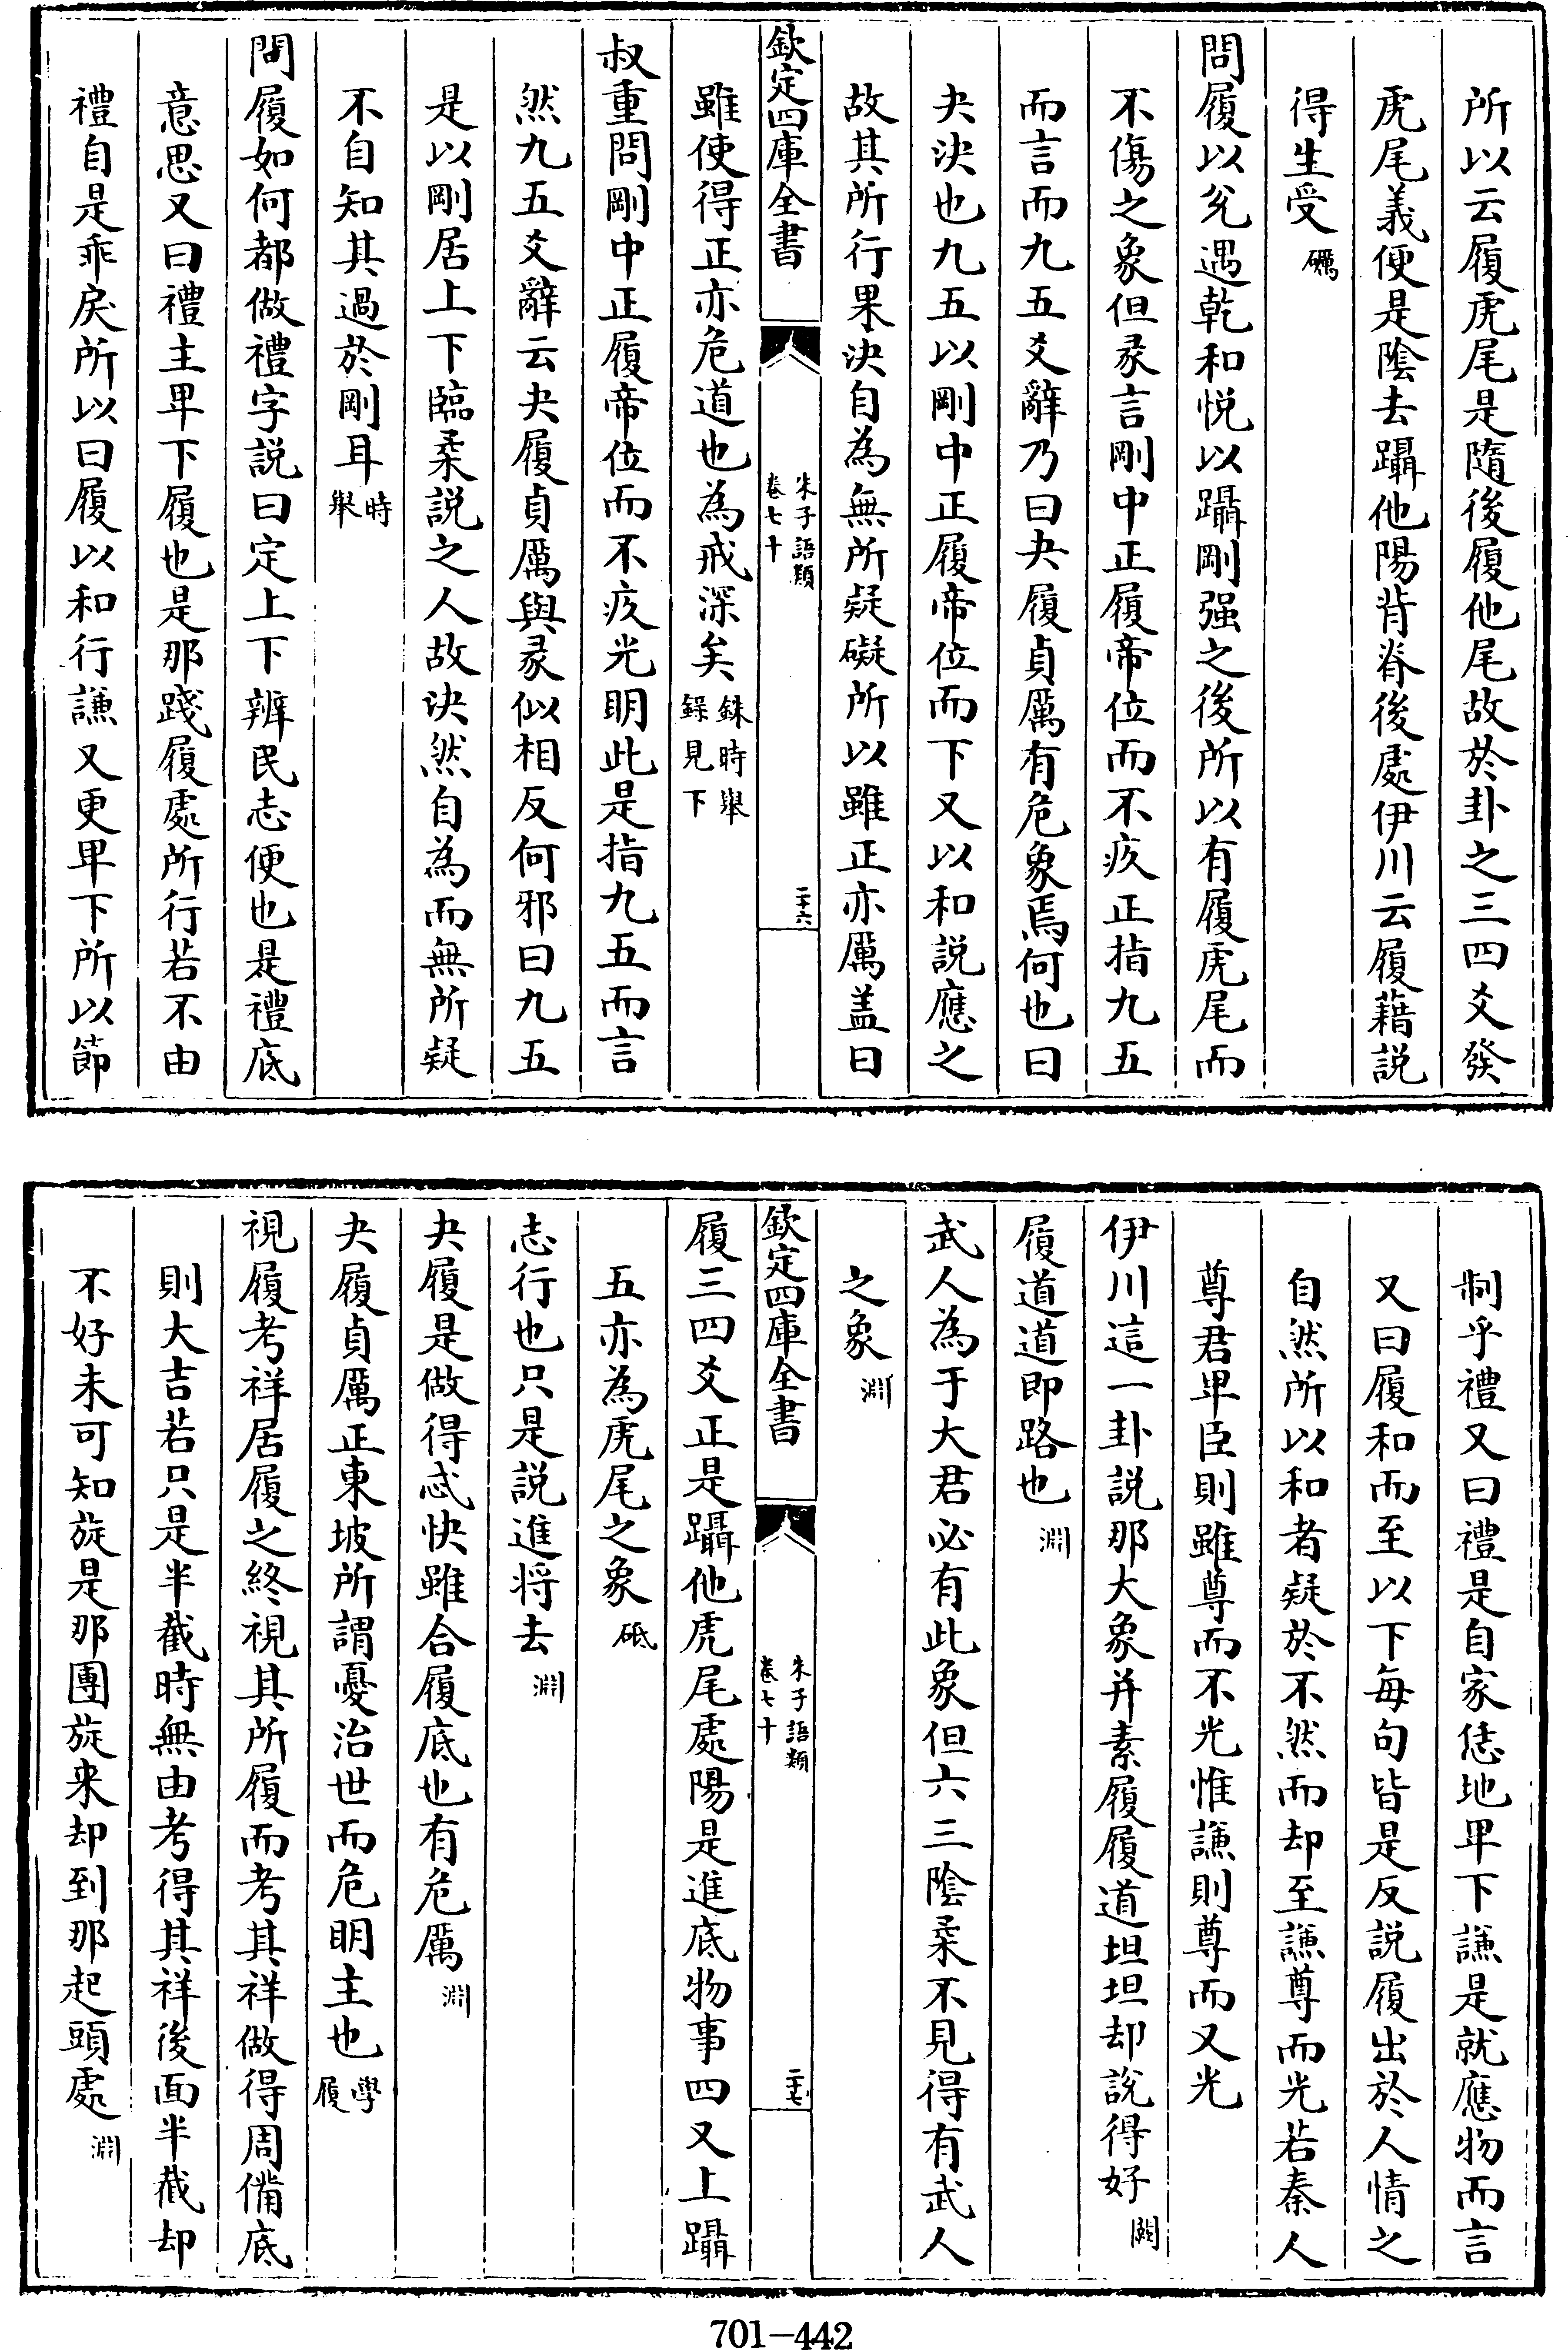 所以云履虎尾是隨後履他尾故於卦之三四爻發
虎尾義便是陰去躡他陽背脊後處伊川云履藉説
得生受 礪
問履以兊遇乾和悅以躡剛强之後所以有履虎尾而
不傷之象但彖言剛中正履帝位而不疚正指九五
而言而九五爻辭乃曰夬履貞厲有危象焉何也曰
夬決也九五以剛中正履帝位而下又以和説應之
故其所行果決自為無所疑礙所以雖正亦厲盖曰
欽定四庫全書
朱子語類
卷七十
二十六
雖使得正亦危道也為戒深矣 銖時舉
錄見下
叔重問剛中正履帝位而不疚光明此是指九五而言
然九五爻辭云夬履貞厲與彖似相反何邪曰九五
是以剛居上下臨柔説之人故決然自為而無所疑
不自知其過於剛耳 時
舉
問履如何都做禮字説曰定上下辨民志便也是禮底
意思又曰禮主卑下履也是那踐履處所行若不由
禮自是乖戾所以曰履以和行謙又更卑下所以節
制乎禮又曰禮是自家恁地卑下謙是就應物而言
又曰履和而至以下每句皆是反説履出於人情之
自然所以和者疑於不然而却至謙尊而光若秦人
尊君卑臣則雖尊而不光惟謙則尊而又光
伊川這一卦説那大象并素履履道坦坦却說得好 閎
履道道即路也 淵
武人為于大君必有此象但六三陰柔不見得有武人
之象 淵
欽定四庫全書
朱子語類
卷七十
二十七
履三四爻正是躡他虎尾處陽是進底物事四又上躡
五亦為虎尾之象 砥
志行也只是説進将去 淵
夬履是做得忒快雖合履底也有危厲 淵
夬履貞厲正東坡所謂憂治世而危明主也 學
履
視履考祥居履之終視其所履而考其祥做得周備底
則大吉若只是半截時無由考得其祥後面半截却
不好未可知旋是那團旋来却到那起頭處 淵
701-442